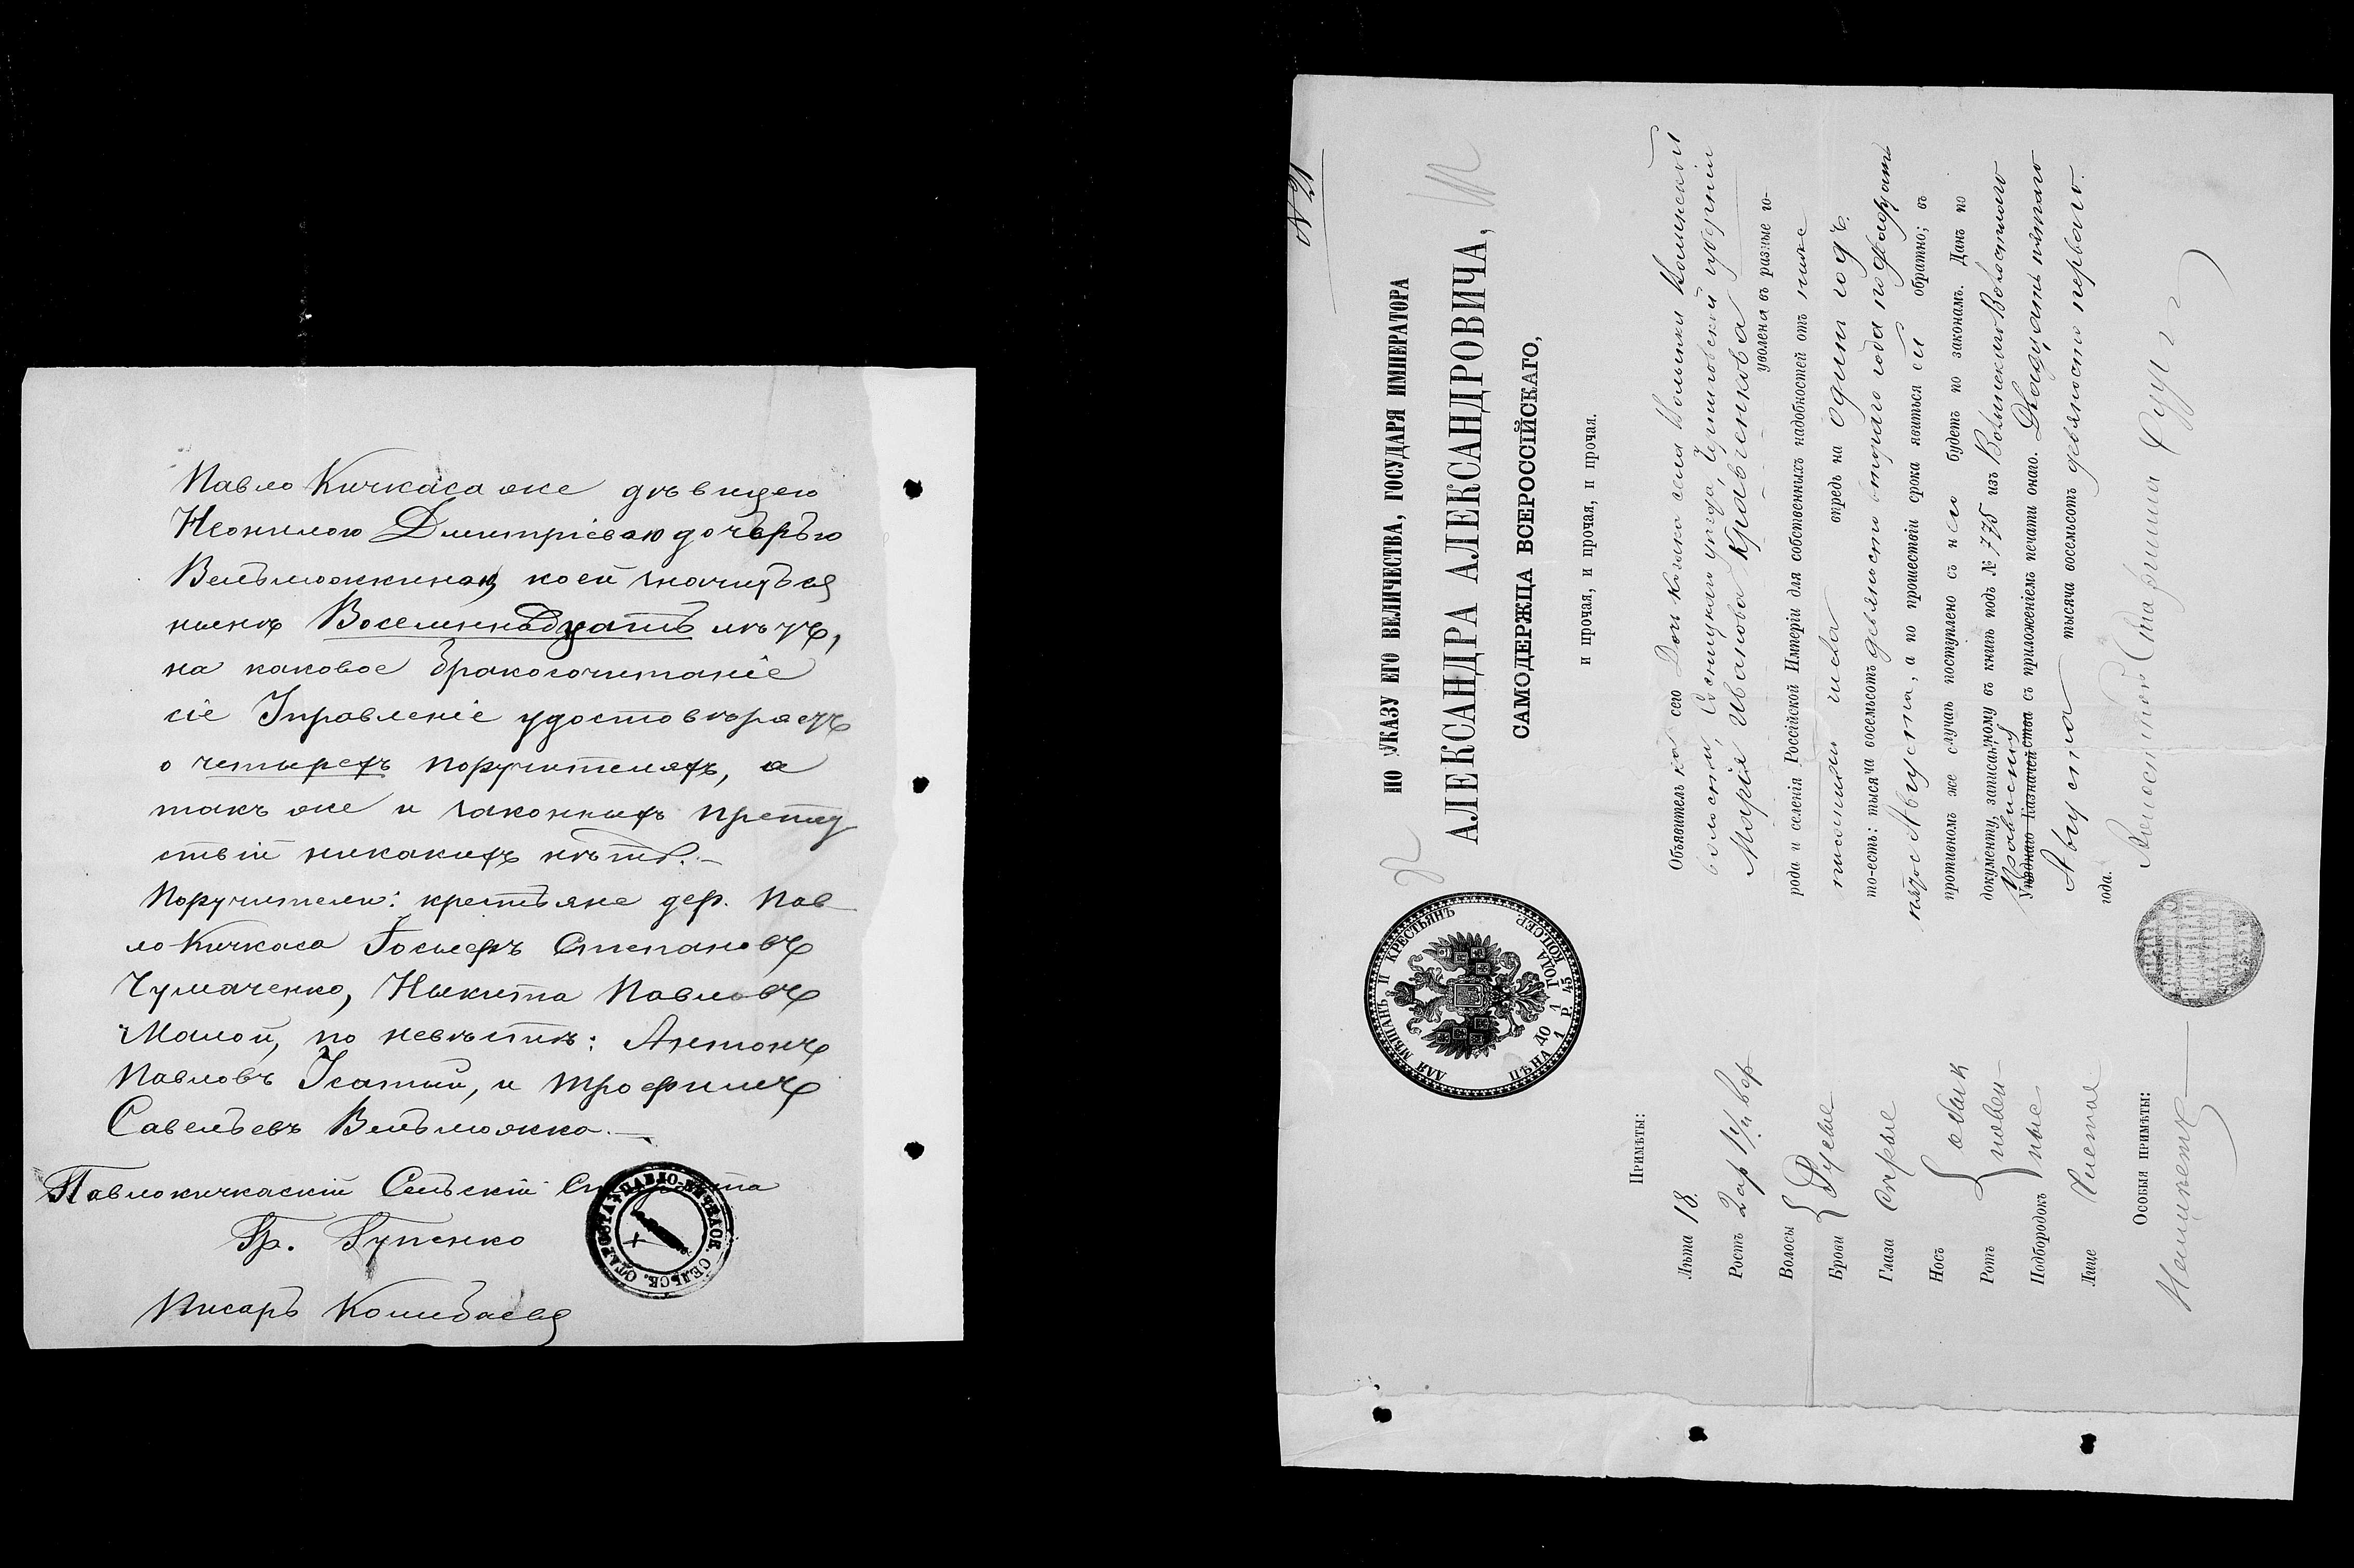 Павло Кичкаса же дѣвицею
Неонилою Дмитріевою дочерью
Вельможкиною, коей значиться
нынѣ Восемнадцать лѣтъ,
на каковое бракосочитаніе
сіе Управленіе удостовѣряетъ
о четырехъ поручителяхъ, а
такъ же и законныхъ препят
ствій никакихъ нѣтъ.—
Поручители: крестьяне дер. Пав
ло Кичкаса Іосифъ Степановъ
Чумаченко, Никита Павловъ
Малой, по невѣстѣ: Антонъ
Павловъ Усатый, и Трофимъ
Савельевъ Вельможко.—
Павлокичкаскій Сельскій Староста
Гр. Гупенко
Писарь
ПАВЛО-КИЧКАСОВ. СЕЛЬСК. СТАРОСТА
№ 21
ПО УКАЗУ ЕГО ВЕЛИЧЕСТВА, ГОСУДАРЯ ИМПЕРАТОРА
АЛЕКСАНДРА АЛЕКСАНДРОВИЧА,
САМОДЕРЖЦА ВСЕРОССІЙСКАГО,
и прочая, и прочая, и прочая.
ДЛЯ МѢЩАНЪ И КРЕСТЬЯНЪ
ЦѢНА ДО 1 ГОДА
1 Р. 45 КОП. СЕР.
Объявительница сего Дочь козака села Волынки Волынской
волости, Сосницкаго уѣзда, Черниговской губерніи
Марія Иванова Кравченкова
уволена въ разные го-
рода и селенія Россійской Имперіи для собственныхъ надобностей отъ ниже
писаннаго числа впредь на одинъ годъ.
то-есть: тысяча восемьсотъ девяносто втораго года по двадцать
пятое Августа, а по прошествіи срока явиться ей обратно; въ
противномъ же случаѣ поступлено съ нею будетъ по законамъ. Данъ по
документу, записанному въ книгѣ подъ № 775 изъ Волынскаго Волостного
Правленія
Уѣзднаго Казначейства съ приложеніемъ печати онаго. Двадцать пятаго
Августа тысяча восемьсотъ девяносто перваго.
года.
Волостной Старшина
Примѣты:
Лѣта 18.
Ростъ 2 ар 1 1/2 вер
Волосы
Брови Русые
Глаза сѣрые
Носъ
Ротъ
Подбородокъ
Лице Чистое
Особыя примѣты:
Неимѣетъ